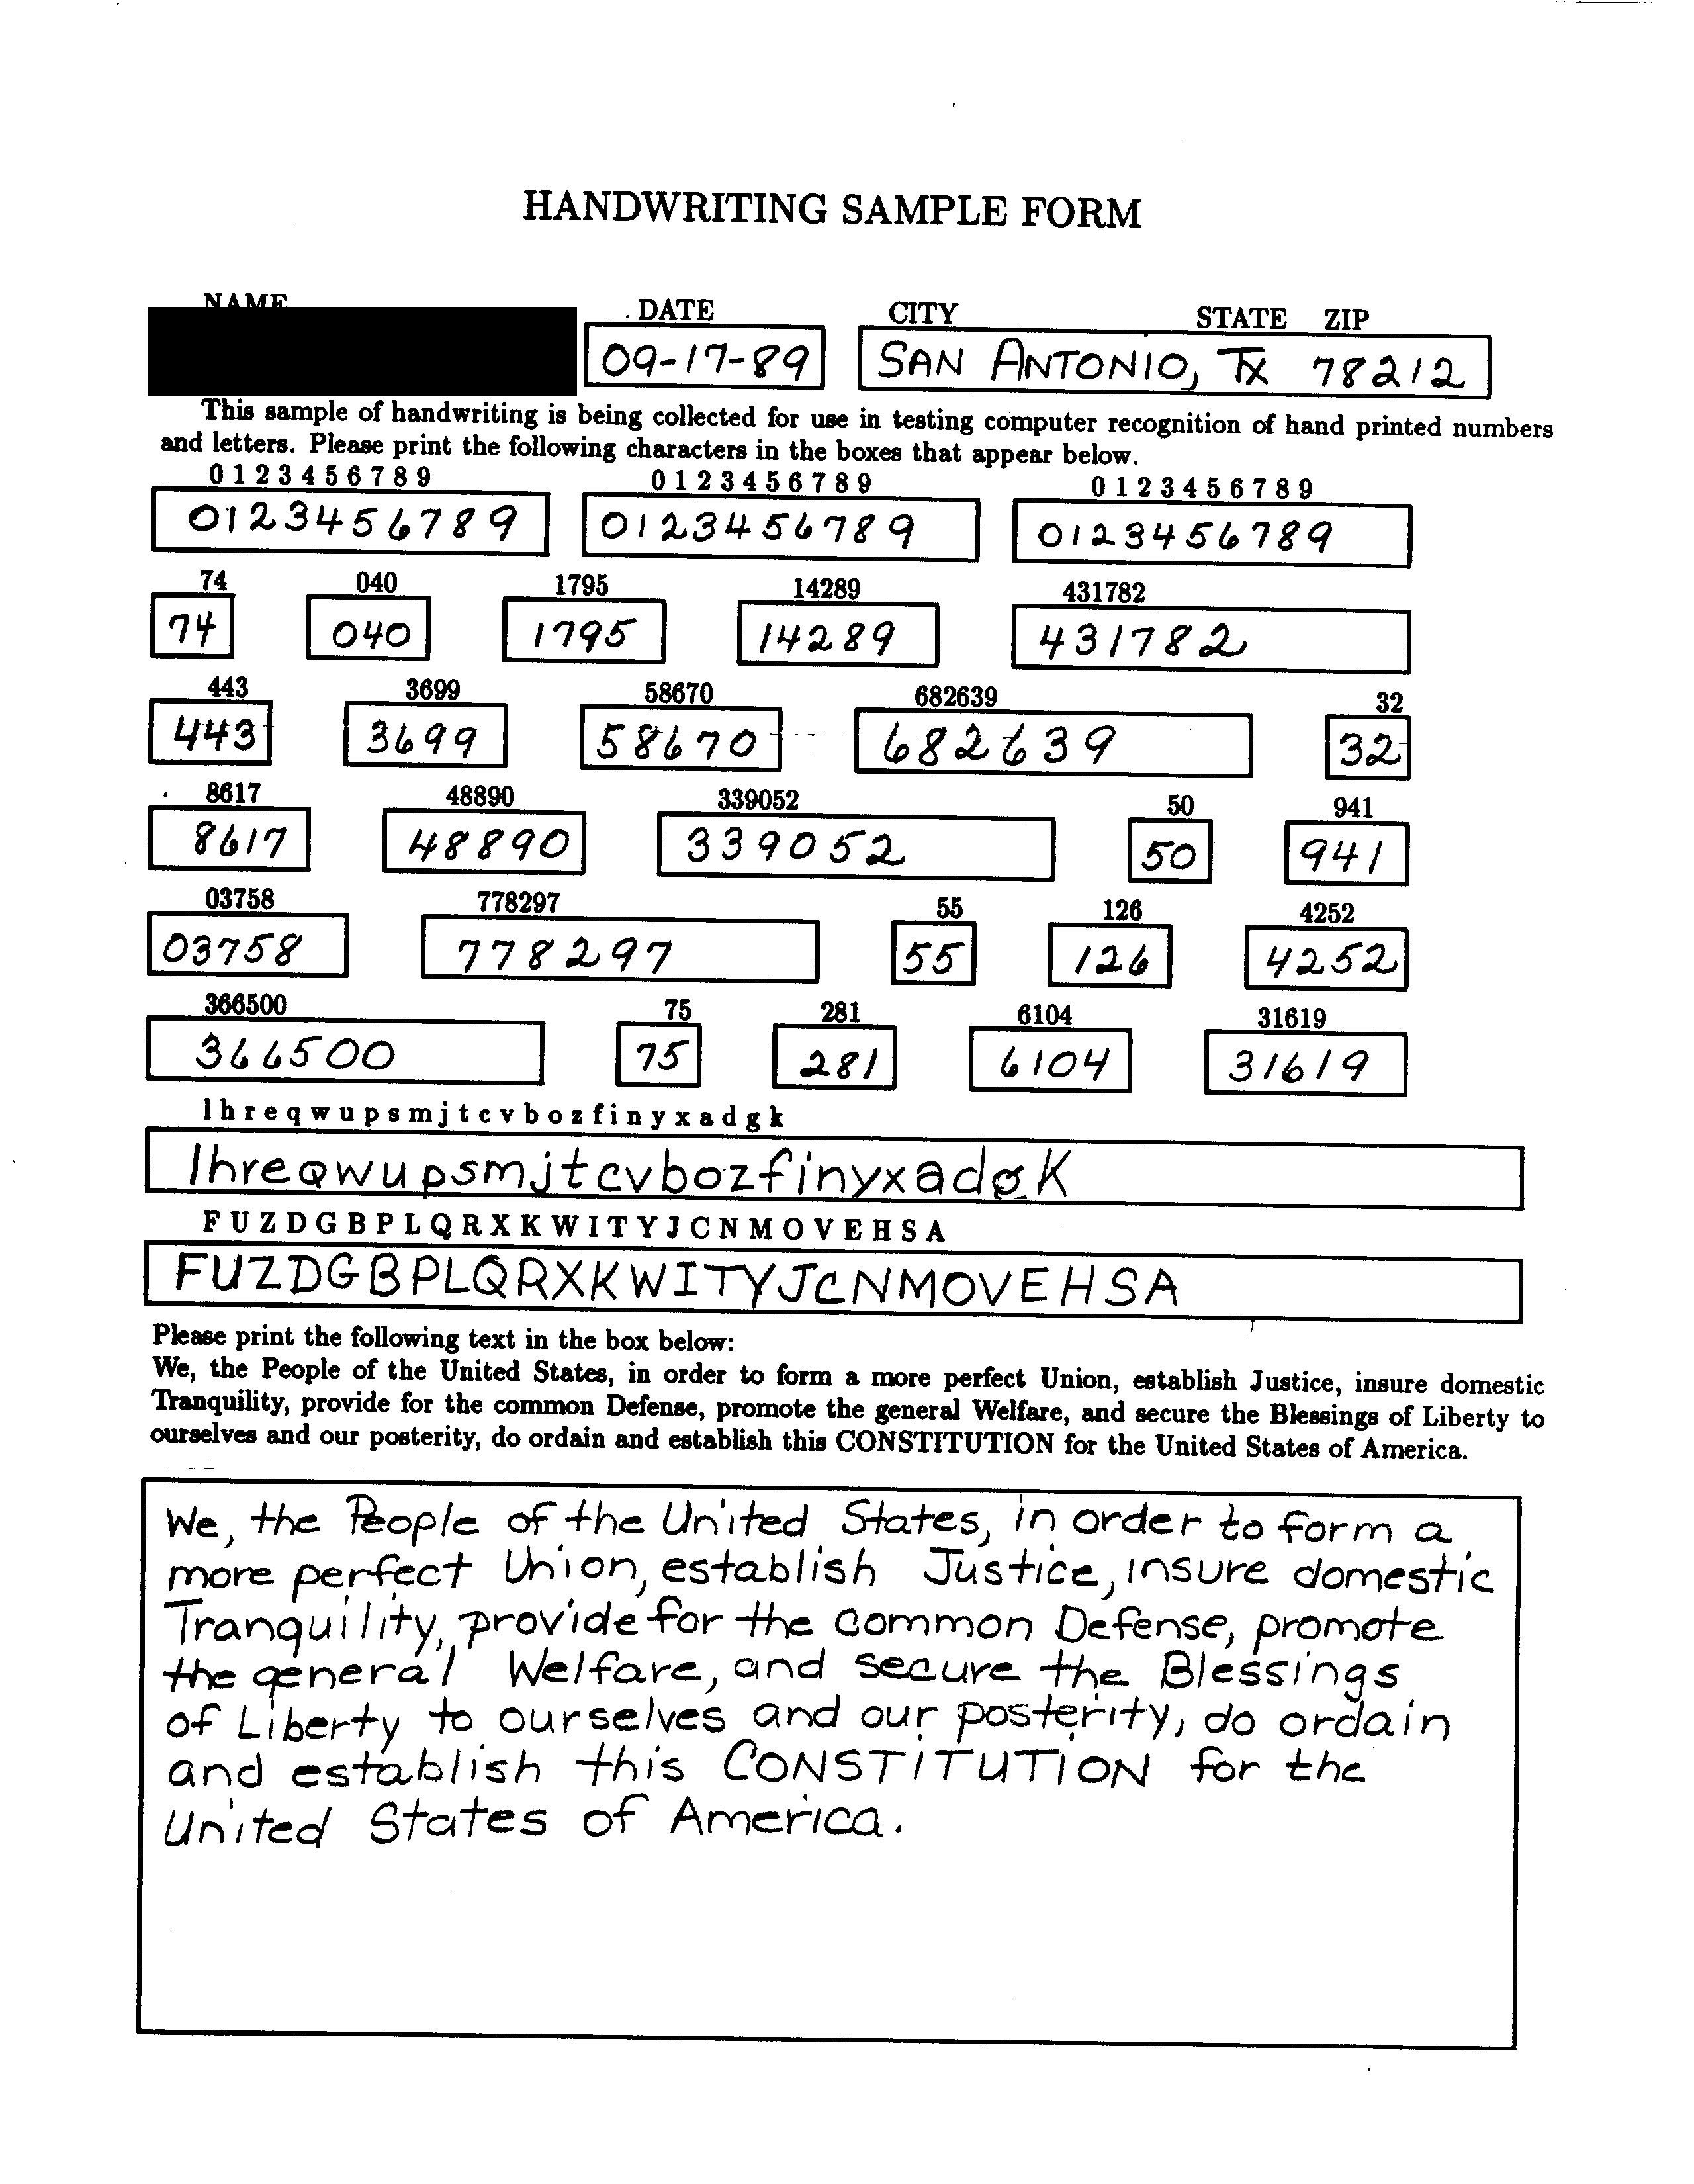 HANDWRITING SAMPLE FORM
NAME DATE CITY STATE ZIP
09-17-89 SAN ANTONIO, TX 78212
This sample of handwriting is being collected for use in testing computer recognition of hand printed numbers
and letters. Please print the following characters in the boxes that appear below.
0 1 2 3 4 5 6 7 8 9 0 1 2 3 4 5 6 7 8 9 0 1 2 3 4 5 6 7 8 9
0123456789 0123456789 0123456789
74 040 1795 14289 431782
74 040 1795 14289 431782
443 3699 58670 682639 32
443 3699 58670 682639 32
8617 48890 339052 50 941
8617 48890 339052 50 941
03758 778297 55 126 4252
03758 778297 55 126 4252
366500 75 281 6104 31619
366500 75 281 6104 31619
l h r e q w u p s m j t c v b o z f i n y x a d g k
lhreqwupsmjtcvbozfinyxadgK
F U Z D G B P L Q R X K W I T Y J C N M O V E H S A
FUZDGBPLQRXKWITYJCNMOVEHSA
Please print the following text in the box below:
We, the People of the United States, in order to form a more perfect Union, establish Justice, insure domestic
Tranquility, provide for the common Defense, promote the general Welfare, and secure the Blessings of Liberty to
ourselves and our posterity, do ordain and establish this CONSTITUTION for the United States of America.
We, the People of the United States, in order to form a
more perfect Union, establish Justice, insure domestic
Tranquility, provide for the common Defense, promote
the general Welfare, and secure the Blessings
of Liberty to ourselves and our posterity, do ordain
and establish this CONSTITUTION for the
United States of America.